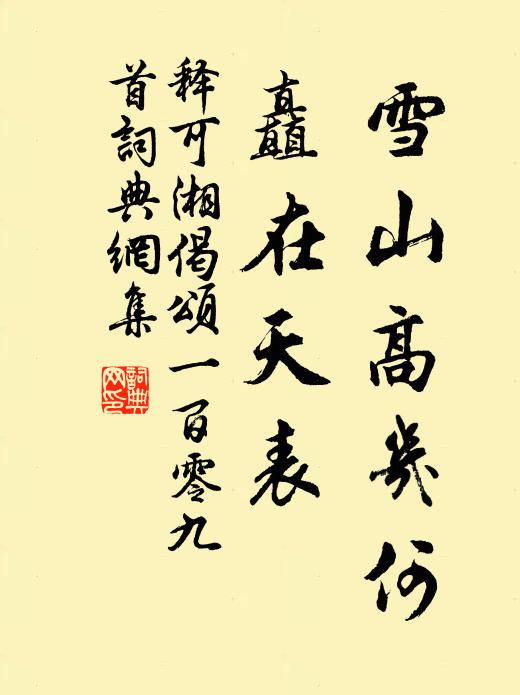 雪山高幾何
矗在天表
释可湘偈頌一百零九
首詞典網集
詞典
网印